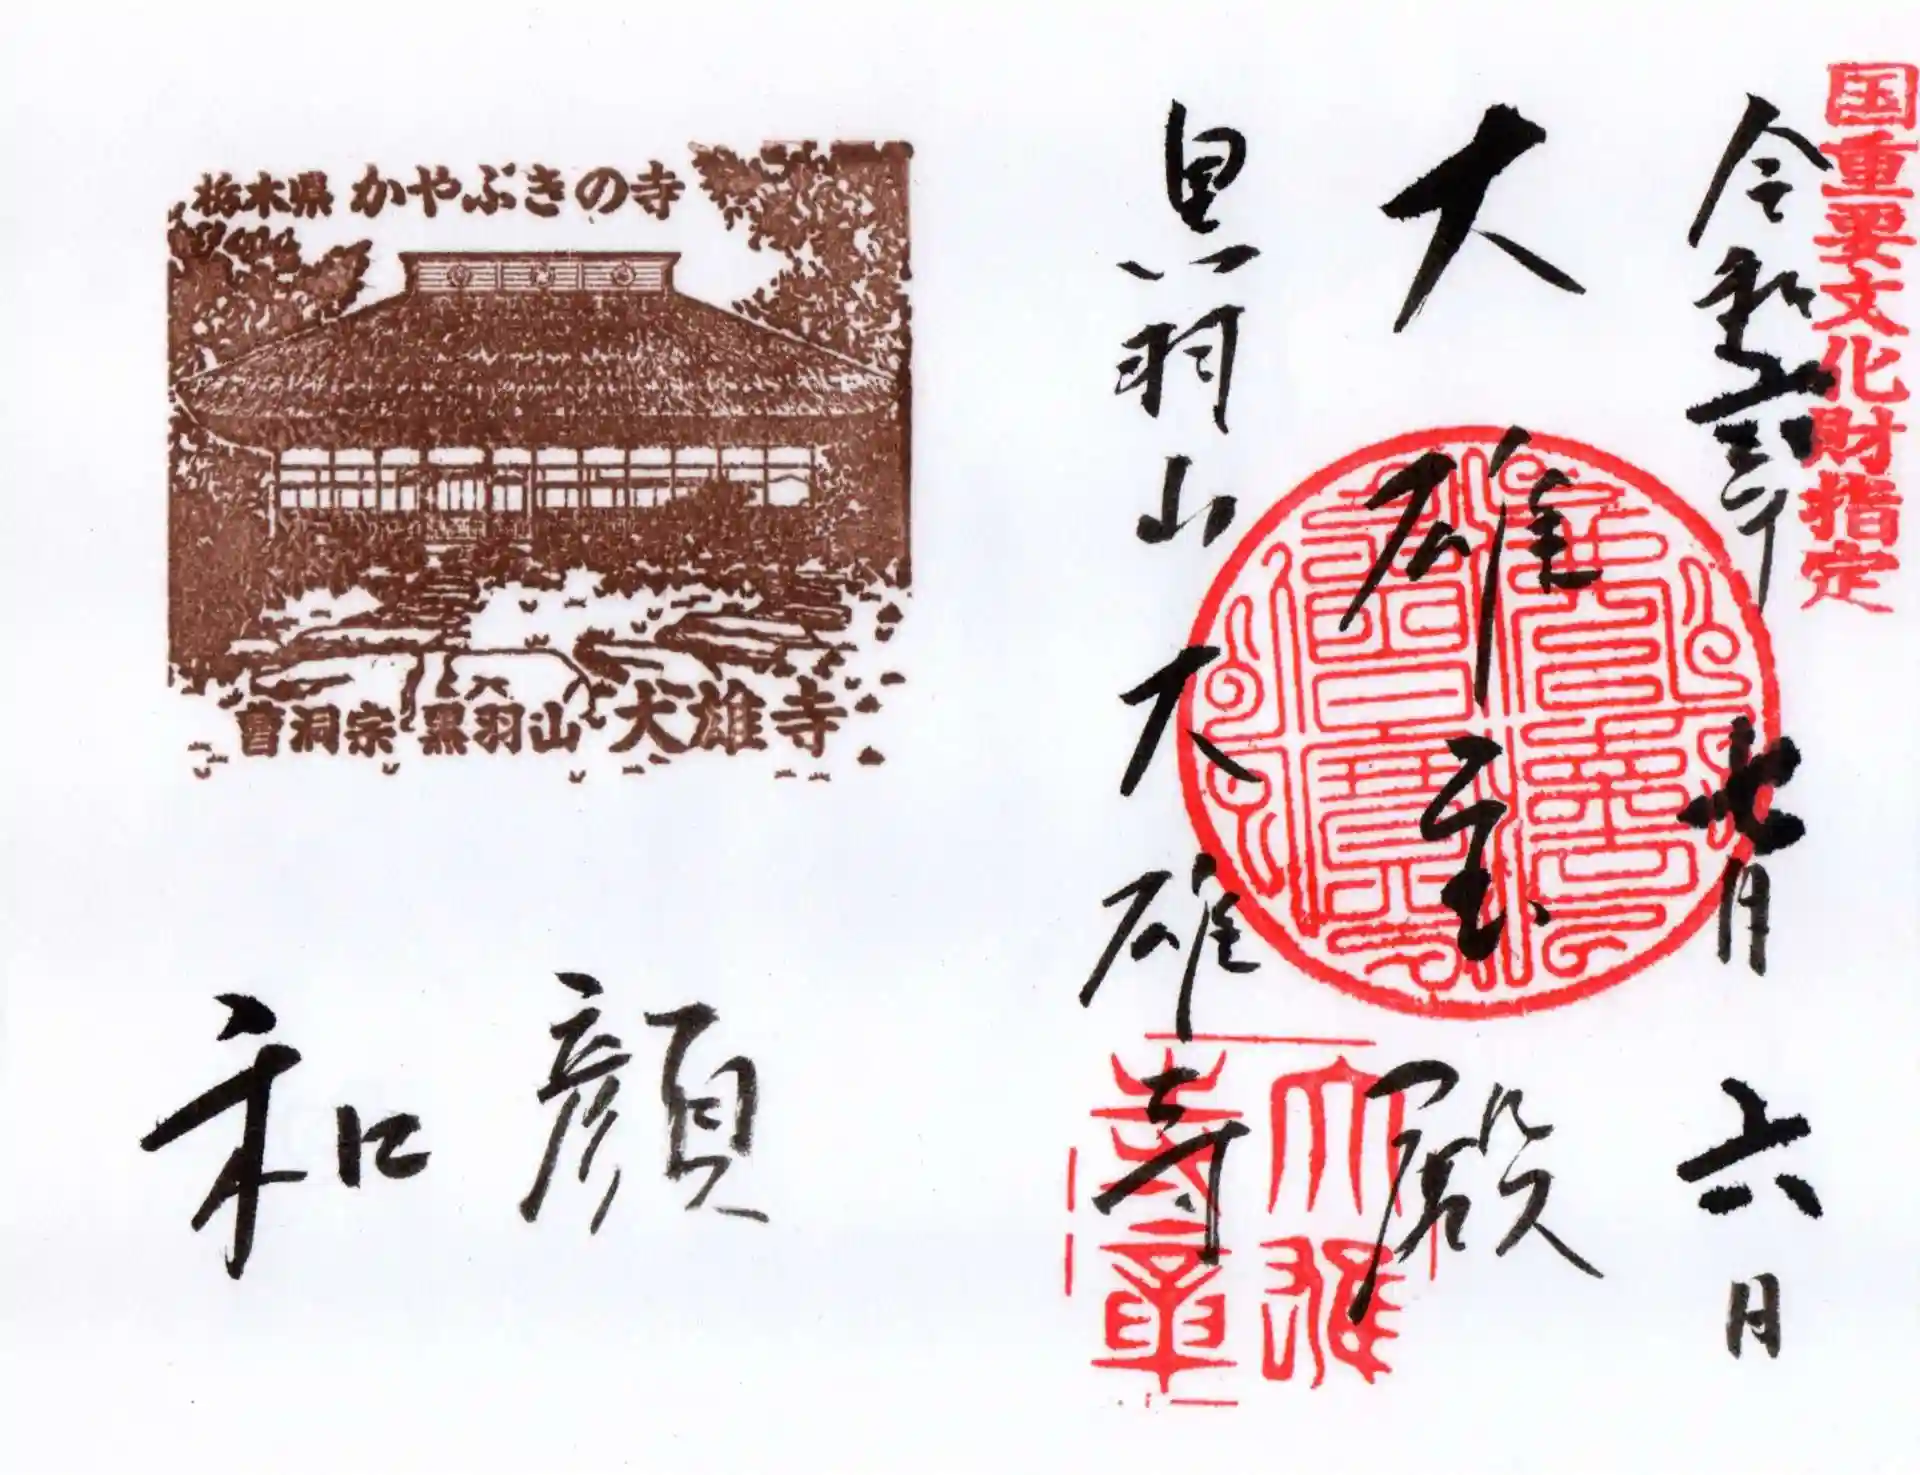 国重要文化財指定
令和三年七月六日
大雄宝殿
黒羽山大雄寺
大雄寺章
栃木県 かやぶきの寺
曹洞宗 黒羽山 大雄寺
和顔